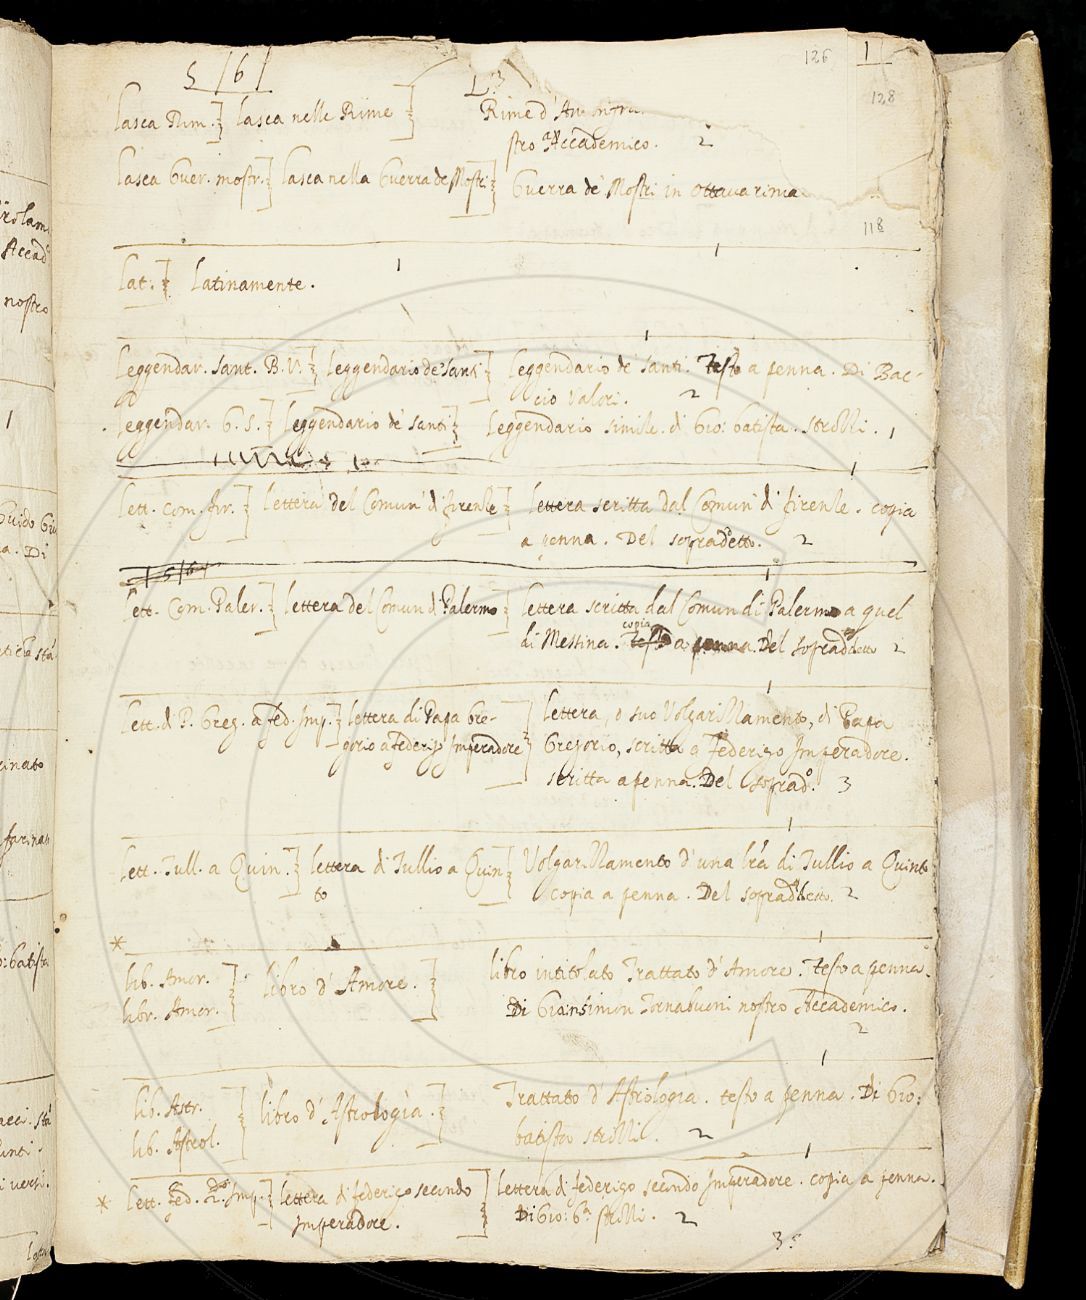 5 / 6 /
L. 3
126
1
128
Lasca Rim. } Lasca nelle Rime } Rime d'
stro Accademico. 2
Lasca Guer. mostr. } Lasca nella Guerra de Mostri } Guerra de' Mostri in ottava rima
118
1 1
Lat. } Latinamente.
1
Leggendar. Sant. B. V. } Leggendario de' Santi } Leggendario de' Santi. Testo a penna. Di Bac-
cio Valori. 2
Leggendar. G. S. } Leggendario de' Santi } Leggendario simile. di Gio: batista. strozzi. 1
1
Lett. Com. fir. } Lettera del Comun' di firenze } Lettera scritta dal Comun' di firenze. copia
a penna. Del sopradetto. 2
5 / 6
1
Lett. Com. Paler. } Lettera del Comun di Palermo } Lettera scritta dal Comun di Palermo a quel
copia
di Messina. Testo a penna. Del sopraddetto 2
1
Lett. d P. Greg. a fed. Imp. } Lettera di Papa Gre- } Lettera, o suo Volgarizzamento, di Papa
gorio a federigo Imperadore Gregorio, scritta a Federigo Imperadore.
scritta a penna. Del soprado. 3
1
Lett. Tull. a Quin. } Lettera di Tullio a Quin } Volgarizzamento d'una lra di Tullio a Quinto
to copia a penna. Del sopraddetto. 2
* 1
Lib. Amor. } Libro d'Amore. } Libro intitolato Trattato d'Amore. Testo a penna.
Libr. Amor. Di Giansimon Tornabuoni nostro Accademico.
2
1
Lib. Astr. } Libro d'Astrologia. } Trattato d'Astrologia. testo a penna. Di Gio:
Lib. Astrol. batista strozzi. 2
1
* Lett. Fed. 2.º Imp. } Lettera di federigo secondo } Lettera di federigo secondo Imperadore. copia a penna.
Imperadore. Di Gio: Ba strozzi. 2
3